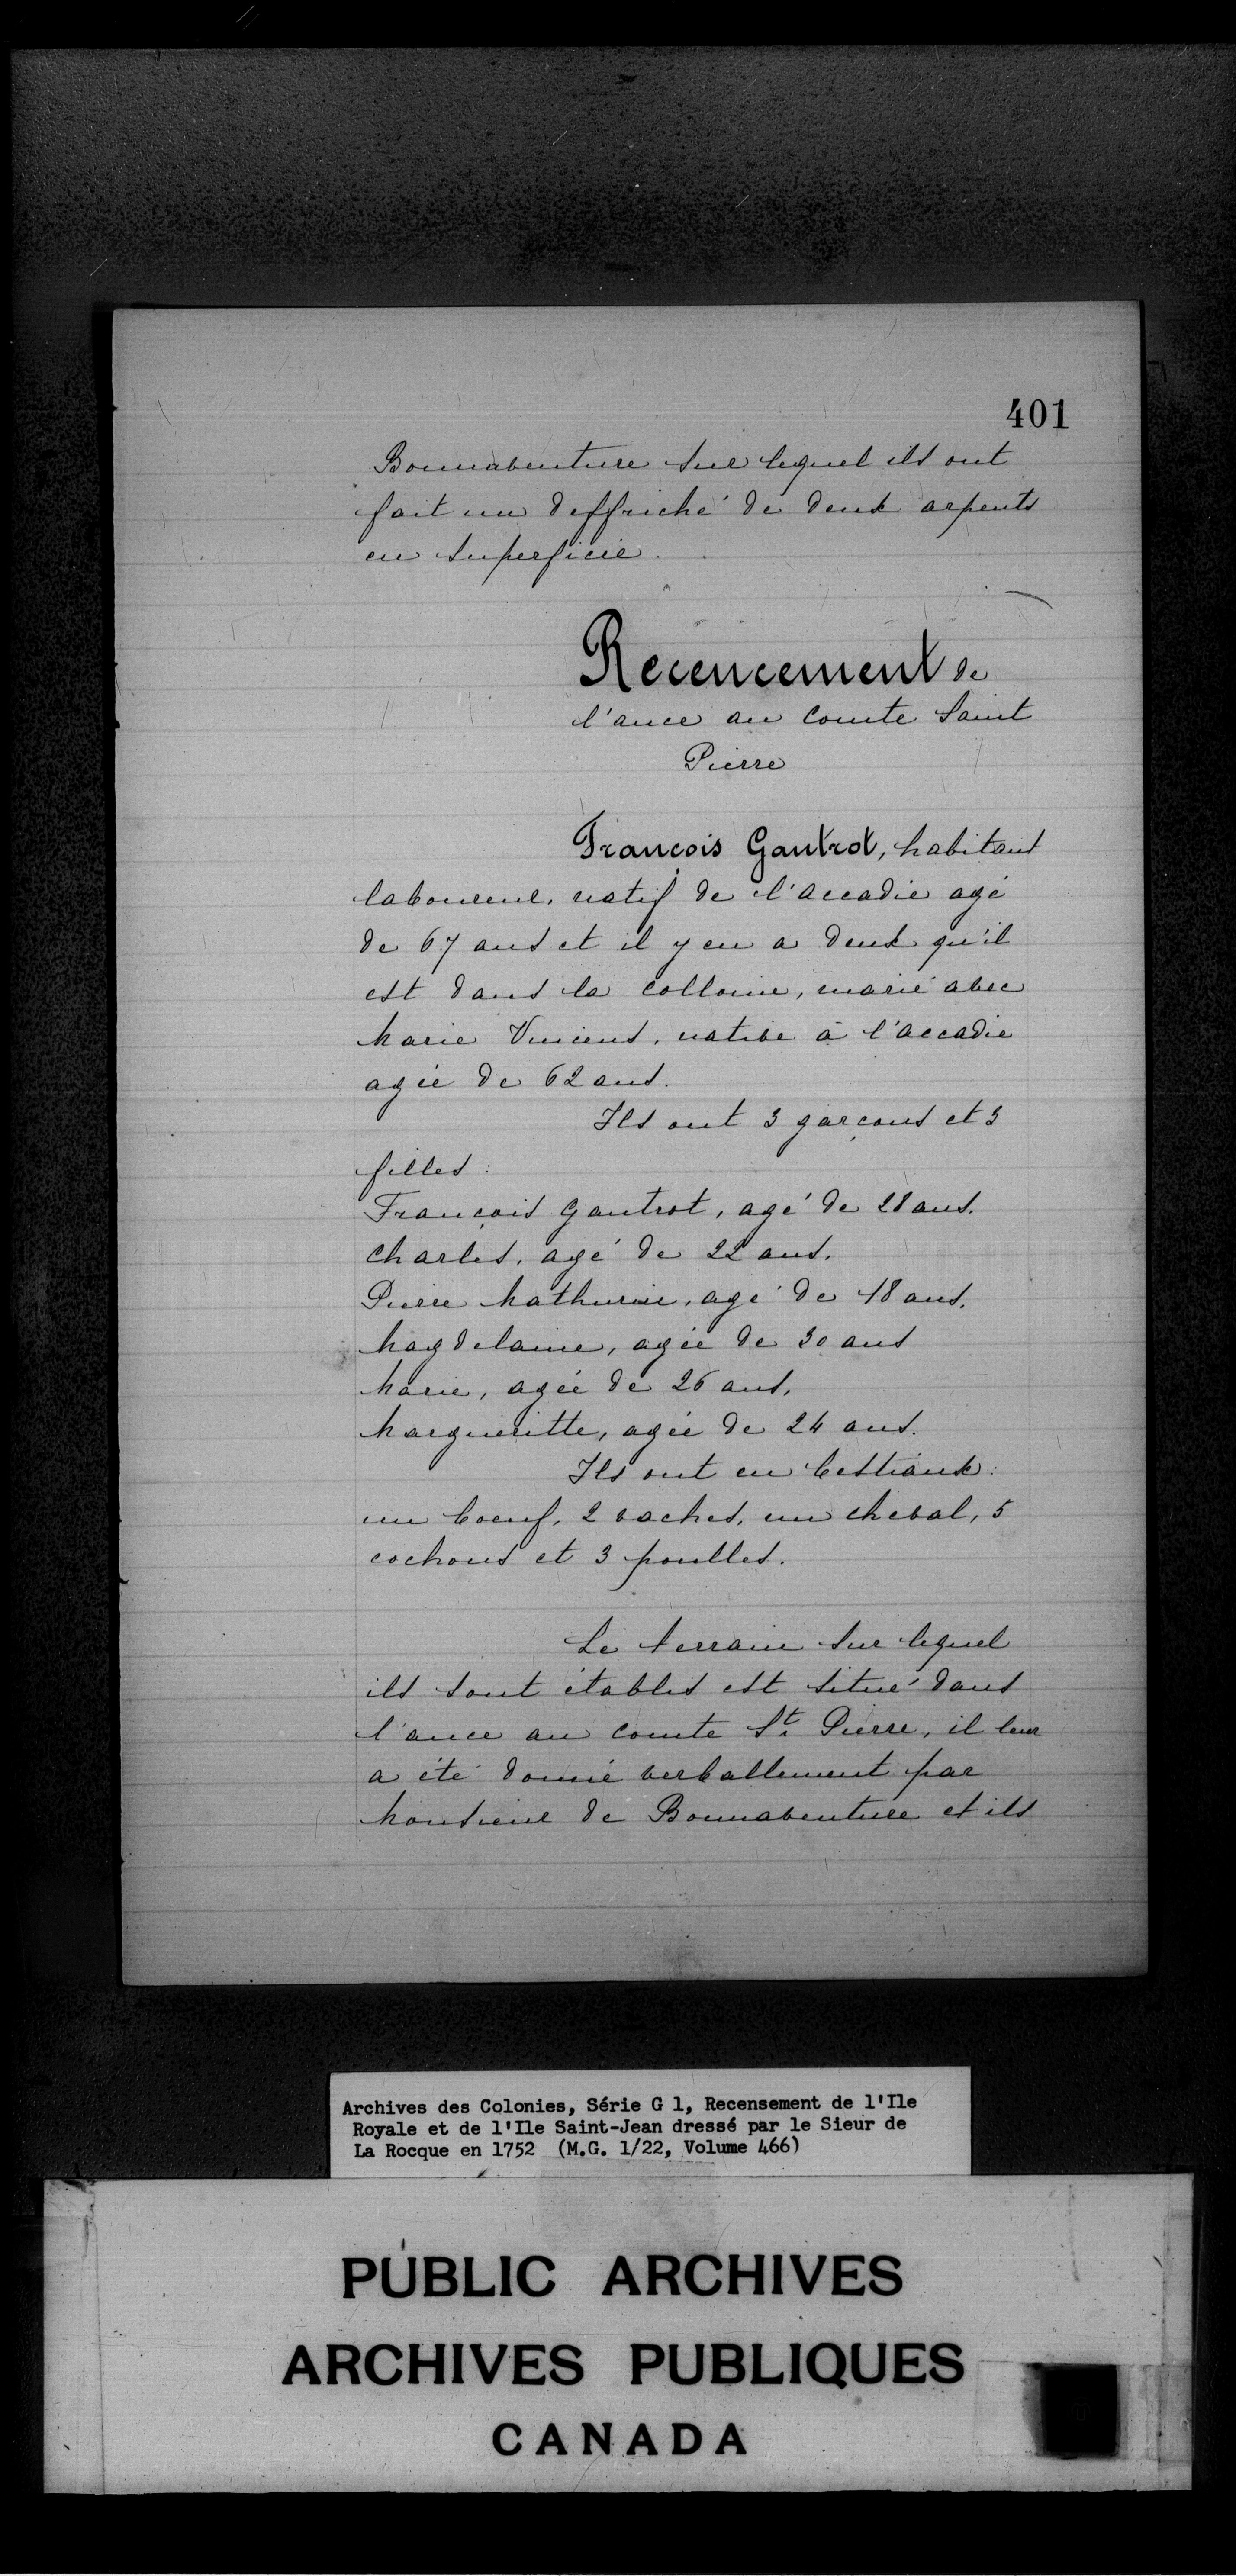 401
Bonnaventure sur lequel ils ont
fait un deffriché de deux arpents
en superficie.
Recencement de
l'ance au comte Saint
Pierre
François Gautrot, habitant
laboureur, natif de l'accadie agé
de 67 ans et il y en a deux qu'il
est dans la collonie, marié avec
Marie Vincent, native à l'accadie
agée de 62 ans.
Ils ont 3 garçons et 3
filles:
François Gautrot, agé de 28 ans.
Charles, agé de 22 ans.
Pierre Mathurin, agé de 18 ans.
Magdelaine, agée de 30 ans
Marie, agée de 26 ans,
Margueritte, agée de 24 ans.
Ils ont en bestiaux:
un boeuf, 2 vaches, un cheval, 5
cochons et 3 poulles.
Le terrain sur lequel
ils sont établis est situé dans
l'ance au comte St. Pierre, il leur
a été donné verballement par
Monsieur de Bonnaventure et ils
Archives des Colonies, Série G 1, Recensement de l'Ile
Royale et de l'Ile Saint-Jean dressé par le Sieur de
La Rocque en 1752 (M.G. 1/22, Volume 466)
PUBLIC ARCHIVES
ARCHIVES PUBLIQUES
CANADA